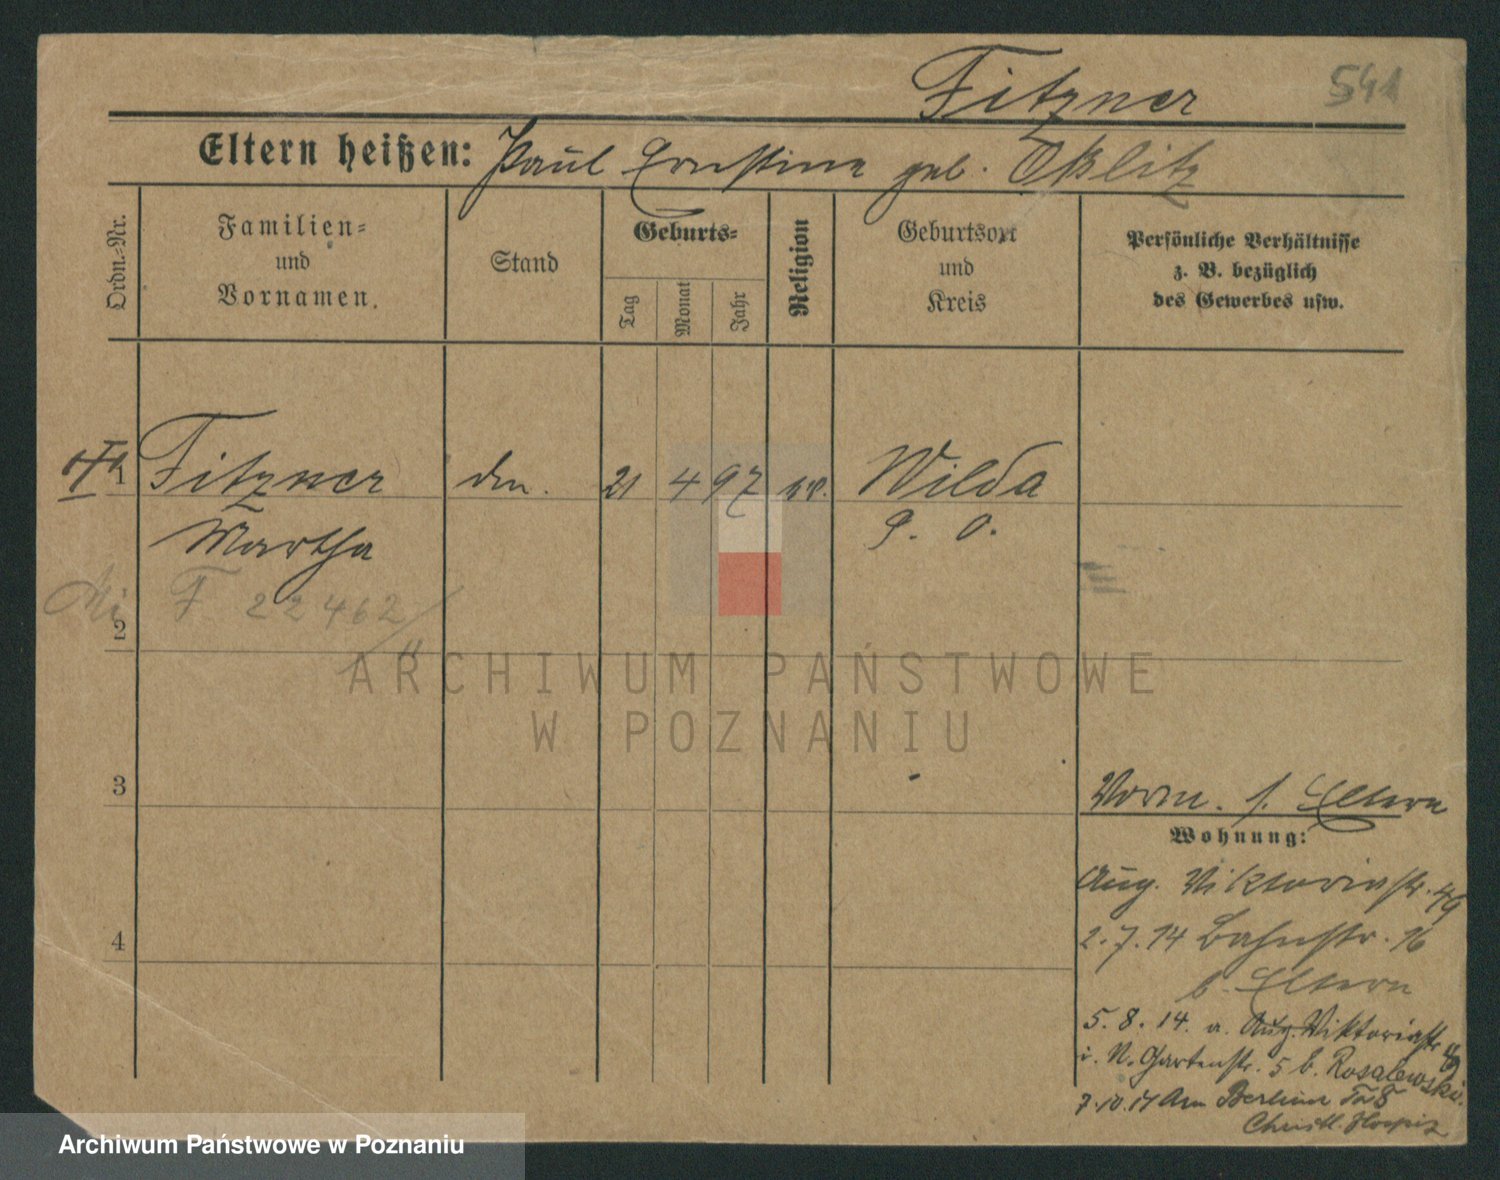 Fitzner 541
Eltern heißen: Paul Ernestine geb. Oßlitz
Ordn.-Nr.
Familien-
und
Vornamen.
Stand
Geburts-
Tag
Monat
Jahr
Religion
Geburtsort
und
Kreis
Persönliche Verhältnisse
z. B. bezüglich
des Gewerbes usw.
1 Fitzner 21 4 97 ev. Wilda
Martha P. O.
F 22462
2
3
4
Vorm. s. Eltern
Wohnung:
Aug. Viktoriastr. 49
2.7.14 Bahnstr. 16
b. Eltern
5.8.14. a. Aug. Viktoriastr
i. N. Gartenstr. 5 b. Rosalewski.
7.10.14 Am Berliner Tor 8
Christl. Hospiz
ARCHIWUM PAŃSTWOWE
W POZNANIU
Archiwum Państwowe w Poznaniu